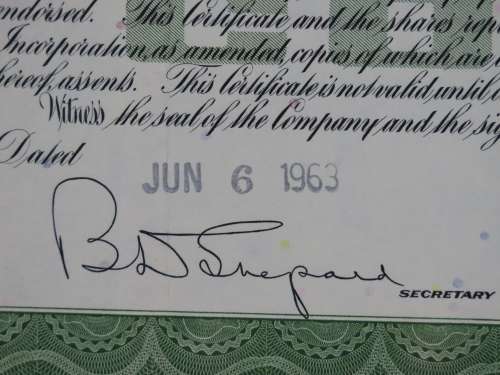 endorsed. This Certificate and the shares repr
Incorporation as amended, copies of which are o
hereof, assents. This Certificate is not valid until c
Witness the seal of the Company and the sig
Dated
JUN 6 1963
B D Shepard
SECRETARY